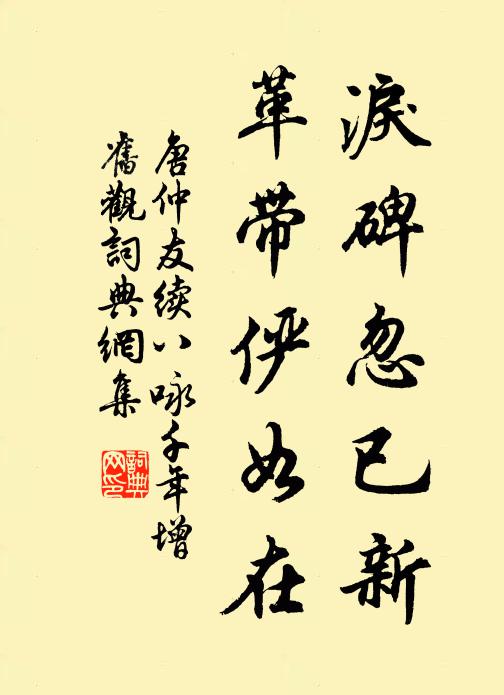 淚碑忽已新
革带俨如在
唐仲友续八咏千年增
舊觀詞典網集
詞典网印